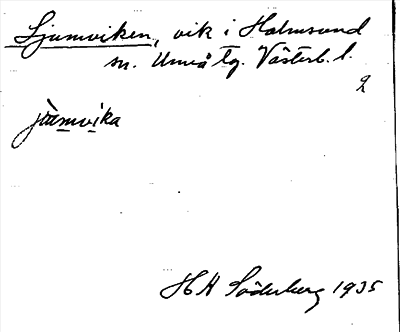 Ljumviken, vik i Holmsund
sn. Umeå tg. Västerb. l.
2
jùmvika
HH Söderberg 1935